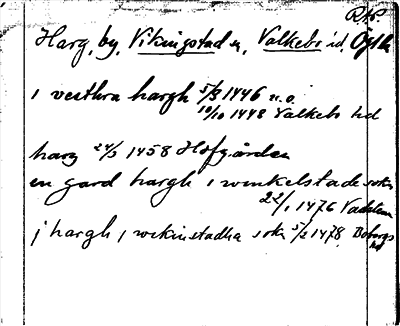 Harg, by, Vikingstad sn, Valkebo hd, Ögtl
i vesthra hargh 5/8 1446 u.o.
10/10 1448 Valkebo hd
harg 24/3 1458 Hofgården
en gard hargh i winkelstade sokn
22/1 1476 Vadstena
j hargh j wikinstadha sokn 5/2 1478, Bobergs
hd